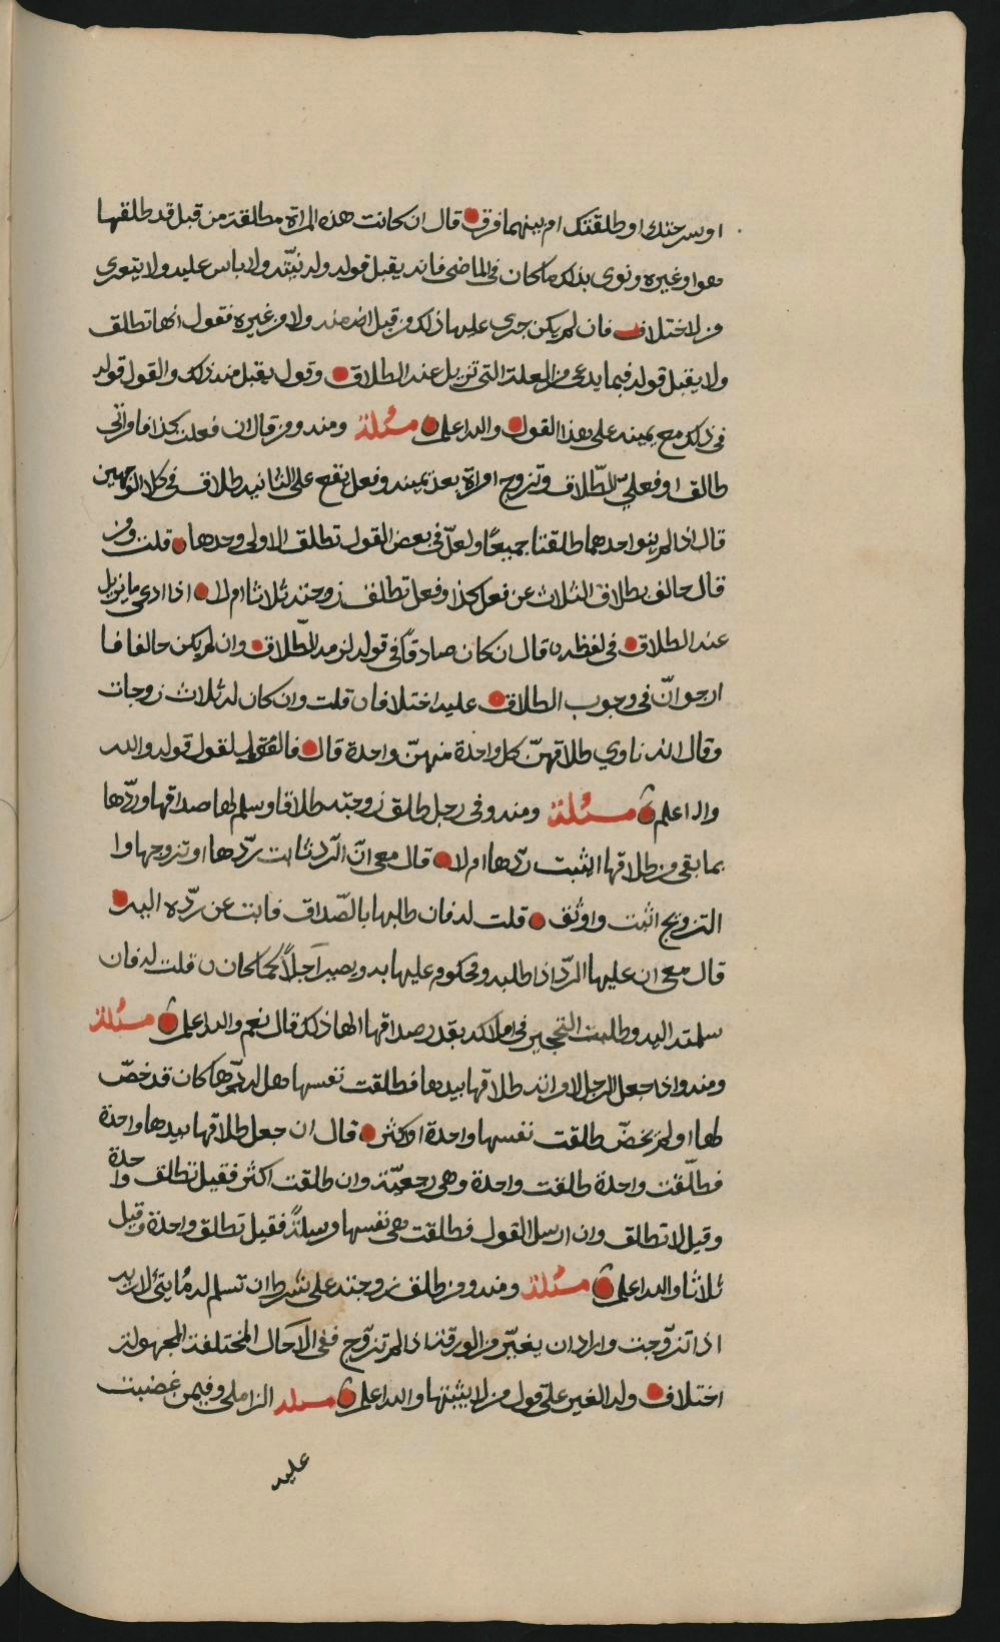 او سرحتك او طلقتك ام بينهما فرق قال ان كانت هذه المراة مطلقة من قبل قد طلقها
هو او غيره ونوى بذلك ما كان في الماضي فانه يقبل قوله وله نيته ولا باس عليه ولا يتعرى
من الاختلاف فان لم يكن جرى عليها ذلك من قبل لا منه ولا من غيره فقول انها تطلق
ولا يقبل قوله فيما يدعي من العلة التي تزيل عنه الطلاق وقول يقبل منه ذلك والقول قوله
في ذلك مع يمينه على هذا القول والله اعلم مسئلة ومنه ومن قال ان فعلت كذا فامراتي
طالق او فعليّ الطّلاق وتزوج امراة بعد يمينه وفعل تقع على الثانيه طلاق في كلا الوجهين
قال اذا لم ينو احدهما طلقتا جميعًا ولعلّ في بعض القول تطلق الاولى وحدها قلت ومن
قال حالف بطلاق الثلاث عن فعل كذا وفعل تطلق زوجته ثلاثا ام لا اذا ادعى ما يزيل
عنه الطلاق في لفظه قال ان كان صادقًا في قوله لزمه الطّلاق وان لم يكن حالفا فا
ارجو انّ في وجوب الطلاق عليه اختلافا قلت وان كان له ثلاث زوجات
وقال انه ناوي طلاقهنّ كل واحدة منهنّ واحدة قال فالقول لقول قوله والله
والله اعلم مسئلة ومنه وفي رجل طلق زوجته طلاقا وسلم لها صداقها وردّها
بما بقي من طلاقها ايثبت ردّها ام لا قال معي انّ الرّد ثابت ردّها او تزوجها وا
التزويج اثبت واوثق قلت له فان طالبها بالصّداق فابت عن ردّه اليه
قال معي ان عليها الردّ اذا طلبه ومحكوم عليها به ويصير آجلًا كما كان قلت له فان
سلمته اليه وطلبت التحجير في املاكه بقدر صداقها الها ذلك قال نعم والله اعلم مسئلة
ومنه واذا جعل الرجل لامراته طلاقها بيدها فطلقت نفسها هل له ردّها كان قد خصّ
لها او لم يخصّ طلقت نفسها واحدة او اكثر قال ان جعل طلاقها بيدها واحدة
فطلّقت واحدة طلقت واحدة وهي رجعيّة وان طلقت اكثر فقيل تطلق واحدة
وقيل لا تطلق وان ارسل القول فطلقت هي نفسها مرسلةً فقيل تطلق واحدة وقيل
ثلاثا والله اعلم مسئلة ومنه ومن طلق زوجته على شرط ان تسلم له مائتي لارية
اذا تزوّجت واراد ان يغيّر من الورقة اذا لم تزوّج ففي الآجال المختلفة المجهولة
اختلاف وله الغير على قول من لا يثبتها والله اعلم مسئلة الزاملي وفيمن غضبت
عليه